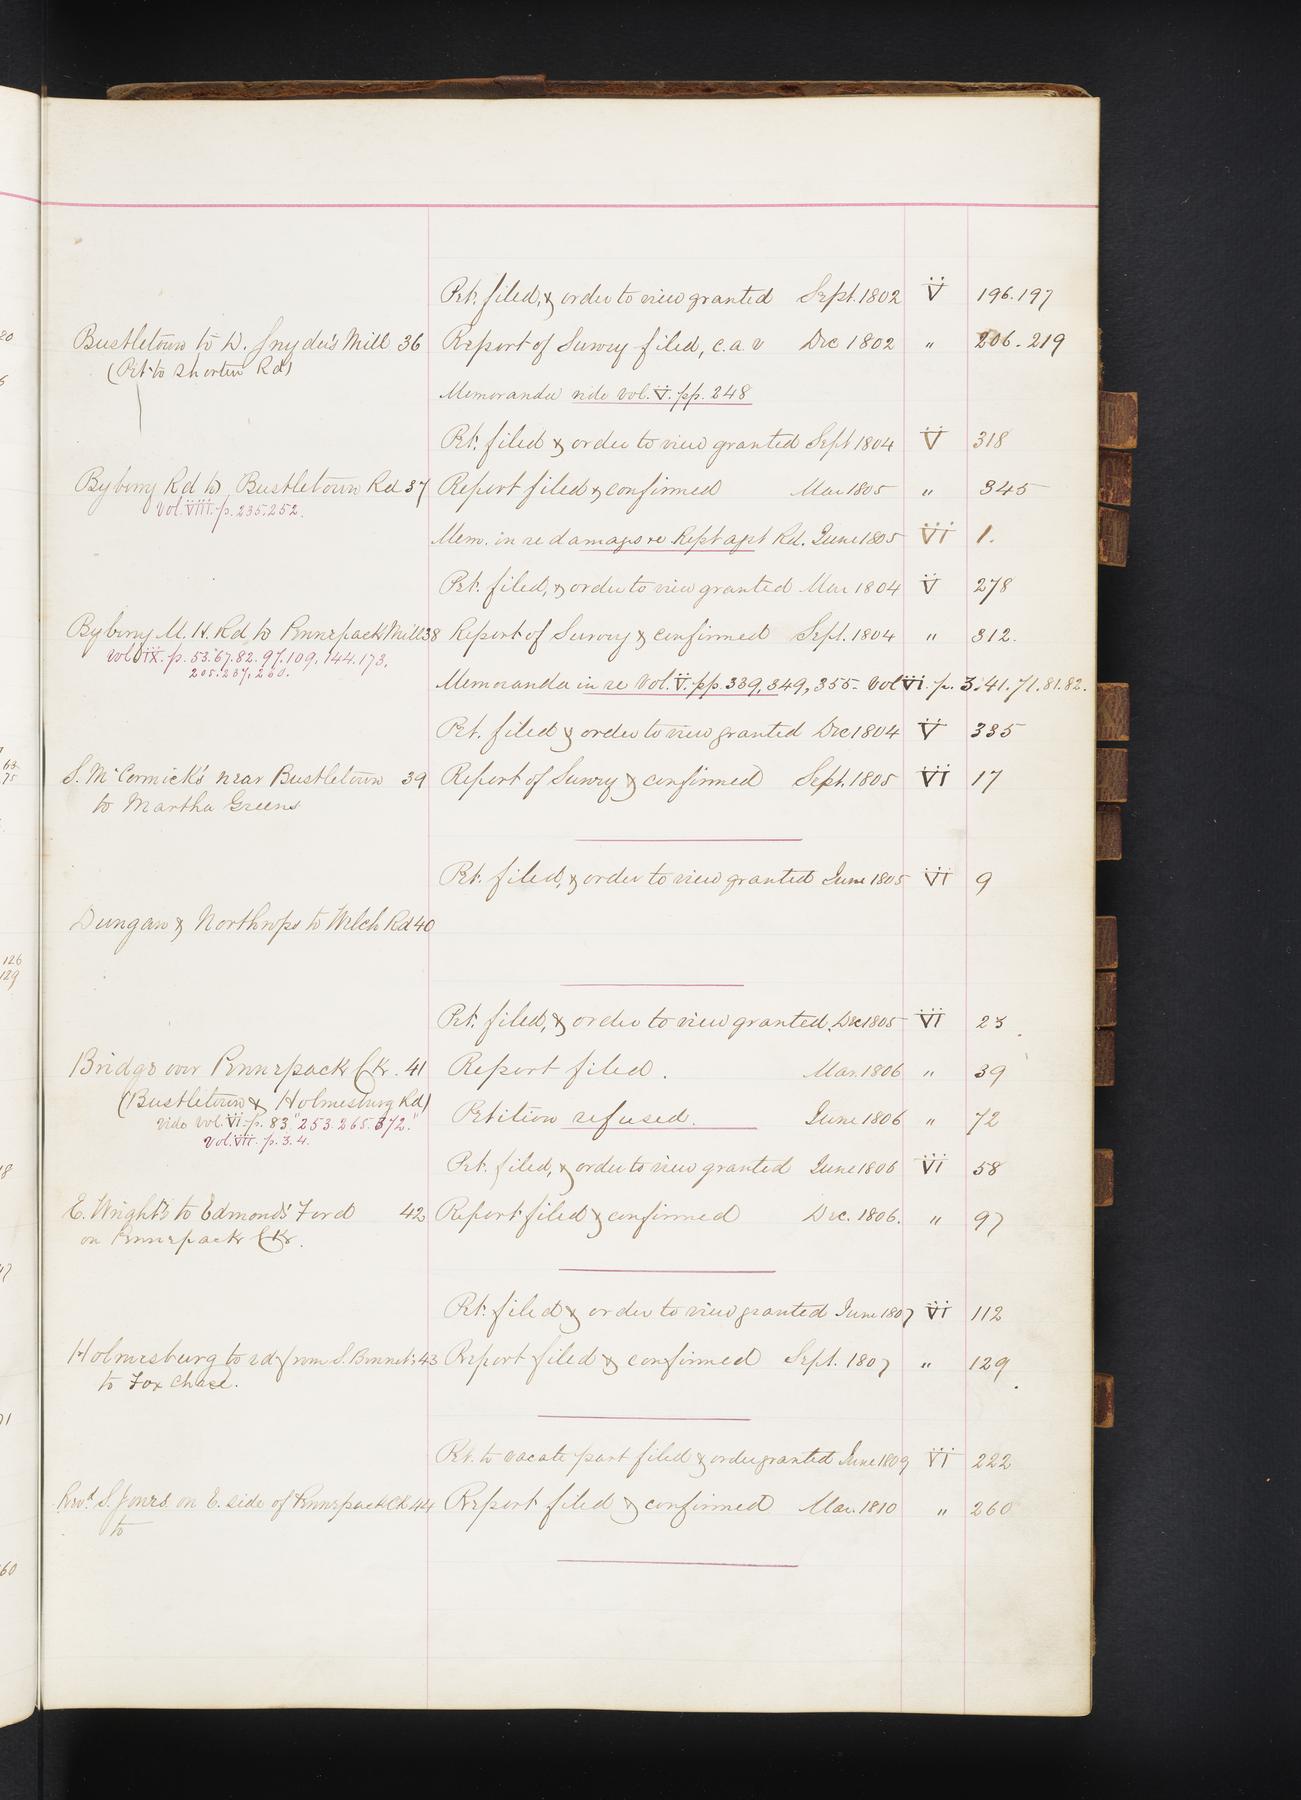 Pet. filed, & order to view granted Sept. 1802 V 196.197
Bustletown to D. Snyder's Mill 36 Report of Survey filed, c.a.v Dec 1802 " 206.219
(Pet. to shorten Rd)
Memoranda vide vol. V. pp. 248
Pet. filed & order to view granted Sept 1804 V 318
Byberry Rd to Bustletown Rd 37 Report filed & confirmed Mar 1805 " 345
Vol. VIII. p. 235.252.
Mem. in re damages re Rept agst Rd. June 1805 VI 1.
Pet. filed, & order to view granted Mar 1804 V 278
Byberry M. H. Rd. to Pennepack Mill 38 Report of Survey & confirmed Sept. 1804 " 312.
Vol IX. p. 53.67.82.97.109.144.173.
205.237.260.
Memoranda in re Vol. V. pp. 339, 349, 355. Vol VI. p. 3.41.71.81.82.
Pet. filed & order to view granted Dec 1804 V 335
S. McCormick's near Bustletown 39 Report of Survey & confirmed Sept. 1805 VI 17
to Martha Greens
Pet. filed, & order to view granted June 1805 VI 9
Dungan & Northrops to Welch Rd 40
Pet. filed, & order to view granted. Dec 1805 VI 23
Bridge over Pennepack Ck. 41 Report filed. Mar. 1806 " 39
(Bustletown & Holmesburg Rd)
vide vol. VI. p. 83. "253.265.372."
Petition refused. June 1806 " 72
Vol. VII. p. 3.4.
Pet. filed, & order to view granted June 1806 VI 58
E. Wright's to Edmonds' Ford 42 Report filed & confirmed Dec. 1806. " 97
on Pennepack Ck.
Pet. filed & order to view granted June 1807 VI 112
Holmesburg to rd from S. Bennet's 43 Report filed & confirmed Sept. 1807 " 129
to Fox Chase.
Pet. to vacate part filed & order granted June 1809 VI 222
Revd. S. Jones on E. side of Pennepack Ck 44 Report filed & confirmed Mar. 1810 " 260
to